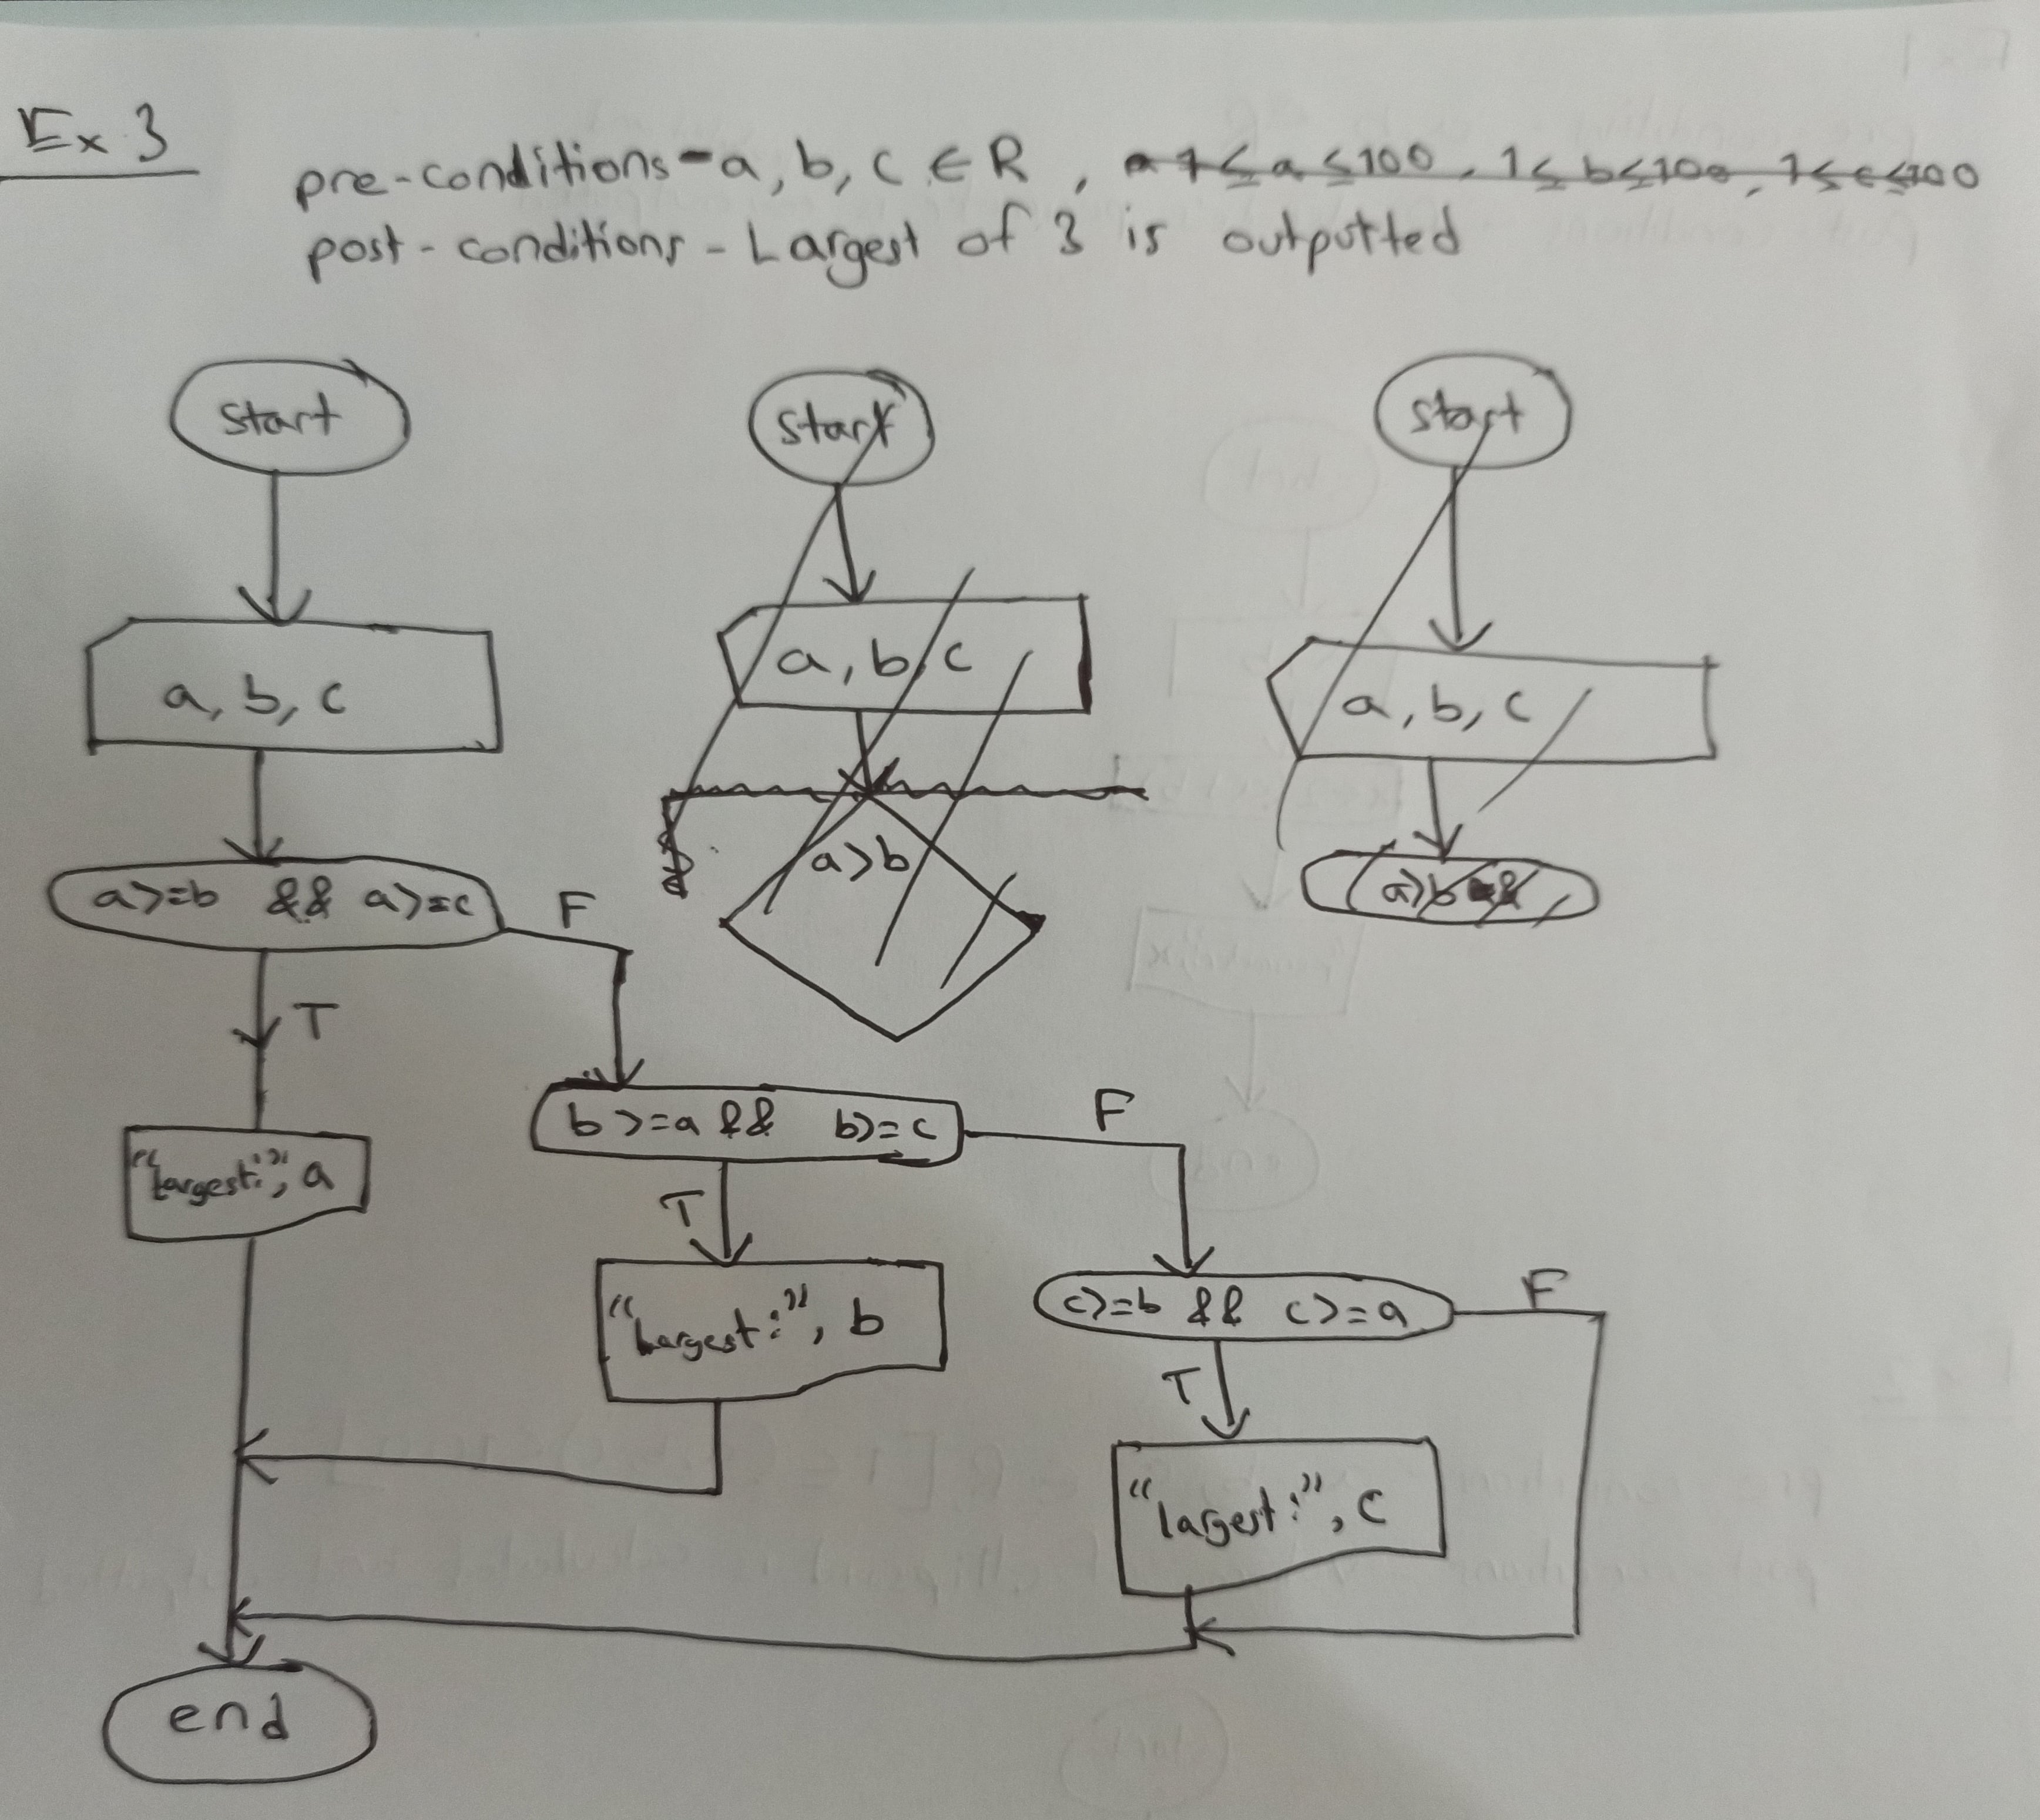 Ex 3
pre-conditions - a, b, c ∈ R , 1 ≤ a ≤ 100, 1 ≤ b ≤ 100, 1 ≤ c ≤ 100
post-conditions - Largest of 3 is outputted
start
a, b, c
a>=b && a>=c
F
T
"largest:", a
b>=a && b>=c
F
T
"largest:", b
c>=b && c>=a
F
T
"largest:", c
end
start
a, b, c
a>b
start
a, b, c
a>b &&